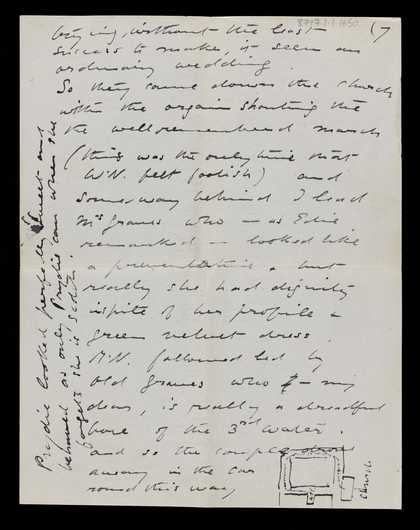 (7
8717.1.1.1050
trying, without the least
success to make, it seem an
ordinary wedding.
So they came down the church
with the organ shouting the
the well remembered march
(this was the only time that
W.N. felt foolish) and
some way behind I lead
Mrs Graves who – as Edie
remarked – looked like
a preventative, but
really she had dignity
inspite of her profile &
green velvet dress.
M.N. followed led by
Old Graves who – my
dear, is really a dreadful
bore of the 3rd water.
and so the couple drove
away in the car
round this way
church
Prydie looked perfectly sweet and
behaved as only Prydie can when she
forgets she is